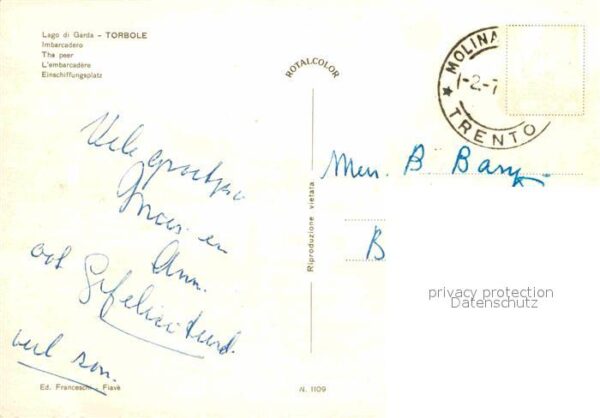 Lago di Garda - TORBOLE
Imbarcadero
The peer
L'embarcadère
Einschiffungsplatz
ROTALCOLOR
MOLINA
1-2-7
TRENTO
Vele groetjes
en
Ann.
ook Gefeliciteerd.
veel zon.
B.
B
Riproduzione vietata
privacy protection
Datenschutz
Ed. Franceschi - Fiavè
N. 1109